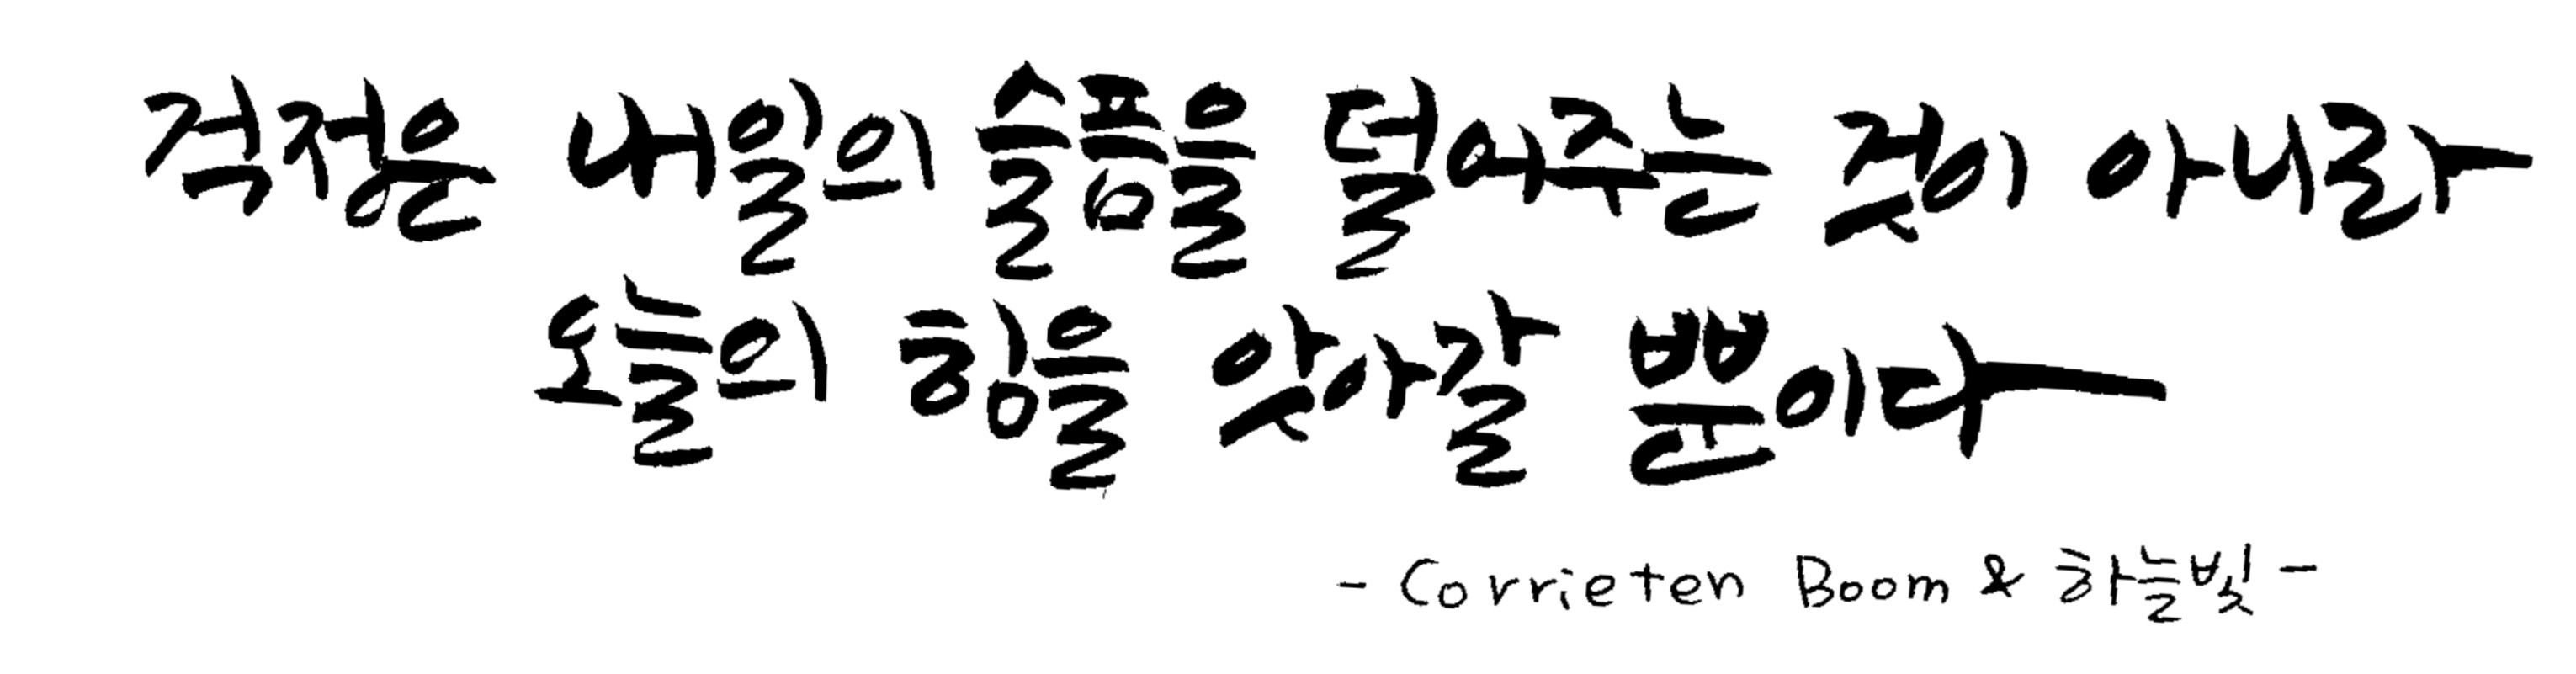 걱정은 내일의 슬픔을 덜어주는 것이 아니라
오늘의 힘을 앗아갈 뿐이다
- Corrieten Boom & 하늘빛 -